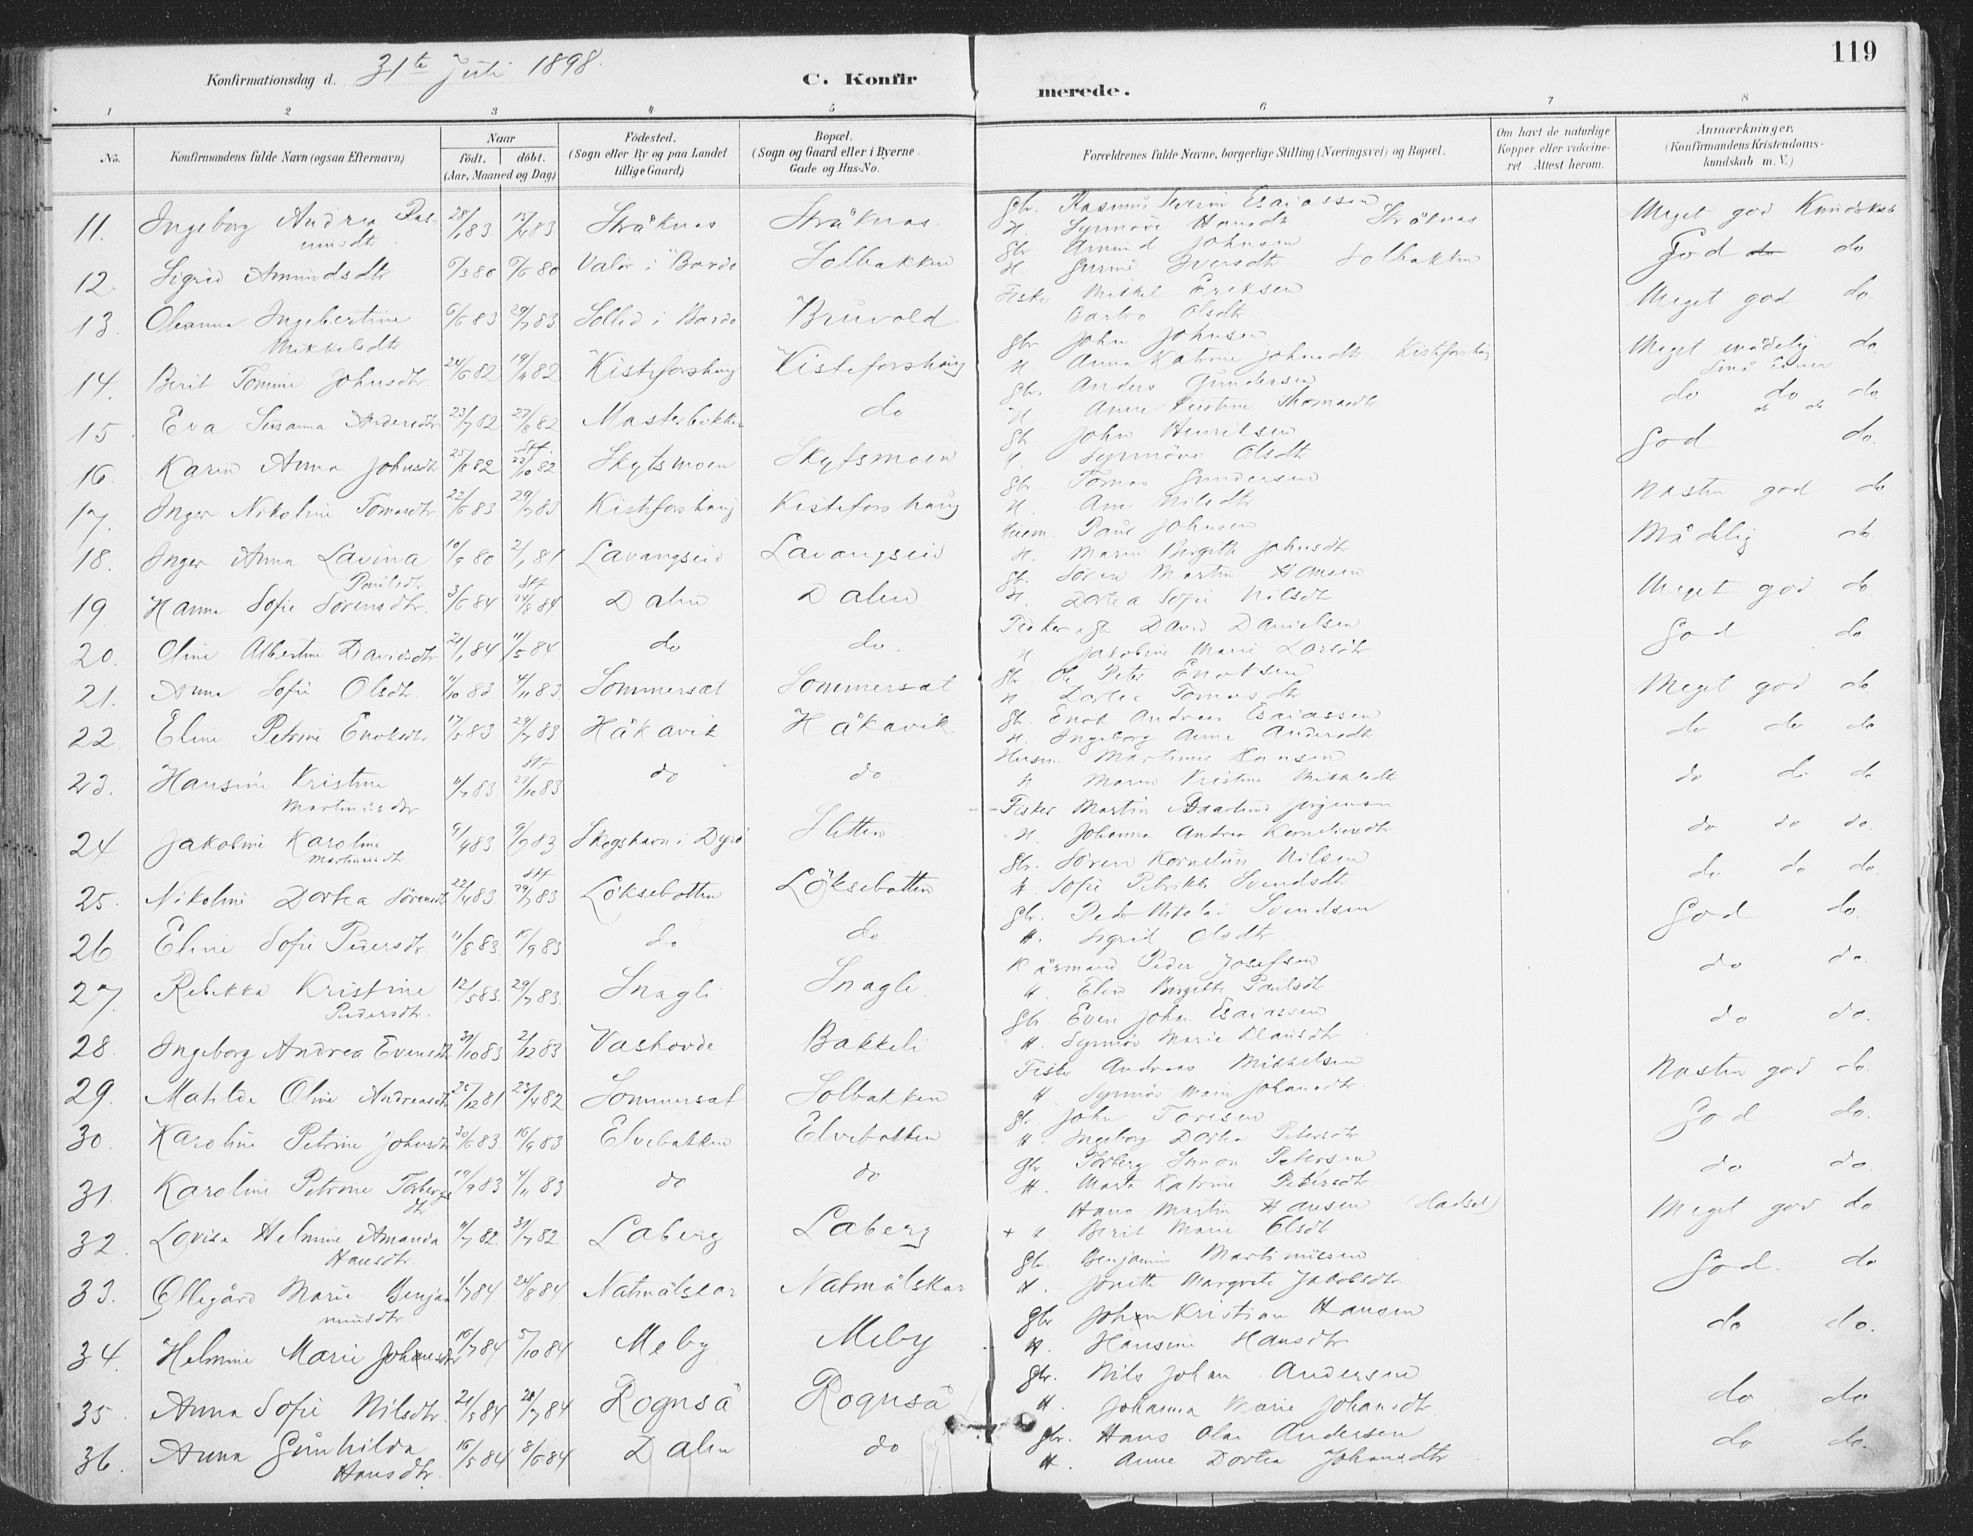 119
Konfirmationsdag d. 31te Juli 1898.
C. Konfirmerede.
1 2 3 4 5 6 7 8
No.
Konfirmandens fulde Navn (ogsaa Efternavn)
Naar
födt. döbt.
(Aar, Maaned og Dag)
Födested.
(Sogn eller By og paa Landet
tillige Gaard)
Bopæl.
(Sogn og Gaard eller i Byerne
Gade og Hus-No.
Forældrenes fulde Navne, borgerlige Stilling (Næringsvei) og Bopæl.
Om havt de naturlige
Kopper eller vakcine-
ret Attest herom.
Anmærkninger.
(Konfirmandens Kristendoms-
kundskab m. V.)
11. Ingeborg Andrea Ras- Stråknas Stråknas. Gbr. Rasmus Severin Esaiassen Meget god Kundskab
musdtr. H. Synnöve Hansdtr Stråknas
12. Sigrid Amundsdtr Solbakken Gbr Amund Johnsen God do
H. Iversdtr Solbakken
13. Oleanna Ingebertine 29/7 83 Bruvold Fisker Mikkel Eriksen Meget god do
Mikkelsdtr Olsdtr
14. Berit Tomine Johnsdtr 24/6 82 Kistefosshaug Kistefosshaug Gbr John Johnsen Meget mådelig do
H. Anna Katrine Johnsdtr Kistefosshaug
15. Eva Susanna Andersdtr 23/7 82 27/8 82 Mastesbakken do Gbr. Anders Gundersen do do do
H Anne Kristine Thomasdtr
16. Karen Anna Johnsdtr 22/10 82 Skytsmoen Skytsmoen Gbr John Henriksen God do.
Synnöve Olsdtr
17. Inger Nikoline Tomasdtr 22/6 83 29/7 83 Kistefosshaug Kistefosshaug Gbr. Tomas Gundersen Nasten god do
H. Nilsdtr
18. Inger Anna Lavina 10/9 80 2/1 81 Lavangseid Lavangseid Paul Johnsen Mådelig do.
Paulsdtr H. Maren Bergitte Johnsdtr
19 Hanna Sofie Sörensdtr. 3/6 84 14/8 84 Dalen Dalen Gbr. Sören Martin Hansen Meget god do
H. Dortea Sofie Nilsdtr
20. Oline Albertine Davidsdtr 21/1 84 11/5 84 do do. Fisker David Danielsen God do
H Jakobine Marie Larsdtr
21. Anna Sofie Olsdtr. 4/11 83 Sommersæt Sommersæt Gbr. Ole Peter Enoksen Meget god do
H Dortea Tomasdtr
22. Eline Petrine Enoksdtr. 17/5 83 29/7 83 Håkavik Håkavik Gbr. Enok Andreas Esaiassen do do do
H. Ingeborg Anne Andersdtr
23. Hansine Kristine 11/7 83 do do. Husm Martinus Hansen do do do
Martinusdtr H Maren Kristine Mikkelsdtr
24 Jakobine Karoline Skogshavn i Dyrö Sletten Fisker Martin Jörgensen do do do.
H. Johanna Andrea Korneliusdtr
25. Nikoline Dortea Sörensdtr 22/4 83 29/7 83 Löksebotten Löksebotten Gbr. Sören Kornelius Nilsen do do do.
H Sofie Petrikke Svendsdtr.
26. Eline Sofie Pedersdtr. 11/8 83 do do Gbr. Peder Nikolai Svendsen God do.
H. Sigrid Olsdtr
27. Rebekka Kristine 12/5 83. 29/7 83. Snagli Snagli. Kårmand Peder Josefsen do do.
Pedersdtr. H Elen Birgitte Paulsdtr
28. Ingeborg Andrea Evensdtr 31/10 83 2/12 83 Vashovde Bakkeli Gbr Even Johan Esaiassen do do.
H. Synnöv Marie Klausdtr
29. Matilde Oline Andreasdtr 23/4 82 Sommersæt Solbakken Fisker Andreas Mikkelsen Nasten god do.
H Synnöv Marie Johansdtr
30. Karoline Petrine Johnsdtr 30/6 83. 16/9 83 Elvebakken Elvebakken Gbr. John Toresen God do.
H. Ingeborg Dortea Petersdtr
31. Karoline Petrine Torbergs 19/9 83 4/11 83 do do Gbr. Torberg Simon Petersen do do.
dtr H. Marta Katrine Petersdtr
32. Lovise Helmine Amanda 11/7 82. 31/7 82 Laberg Laberg Hans Martin Hansen (Hadsel) Meget god do
Hansdtr + Berit Marie Olsdtr
33. Ollegård Marie Benja 1/7 84 24/8 84 Natmålskar Natmålskar Gbr. Benjamin Martinussen God. do
minsdtr H. Jonette Margrete Jakobsdtr
34. Helmine Marie Johansdtr 10/7 84 5/10 84 Meby Meby Gbr Johan Kristian Hansen do do.
H. Hansine Hansdtr
35. Anna Sofie Nilsdtr. 21/5 84 20/7 84 Rognså Rognså Gbr. Nils Johan Andersen do do
H. Johanna Marie Johansdtr
36. Anna Gunhilda 16/5 84 8/6 84 Dalen do Gbr. Hans Olai Andersen do do.
Hansdtr. H. Anne Dortea Johansdtr